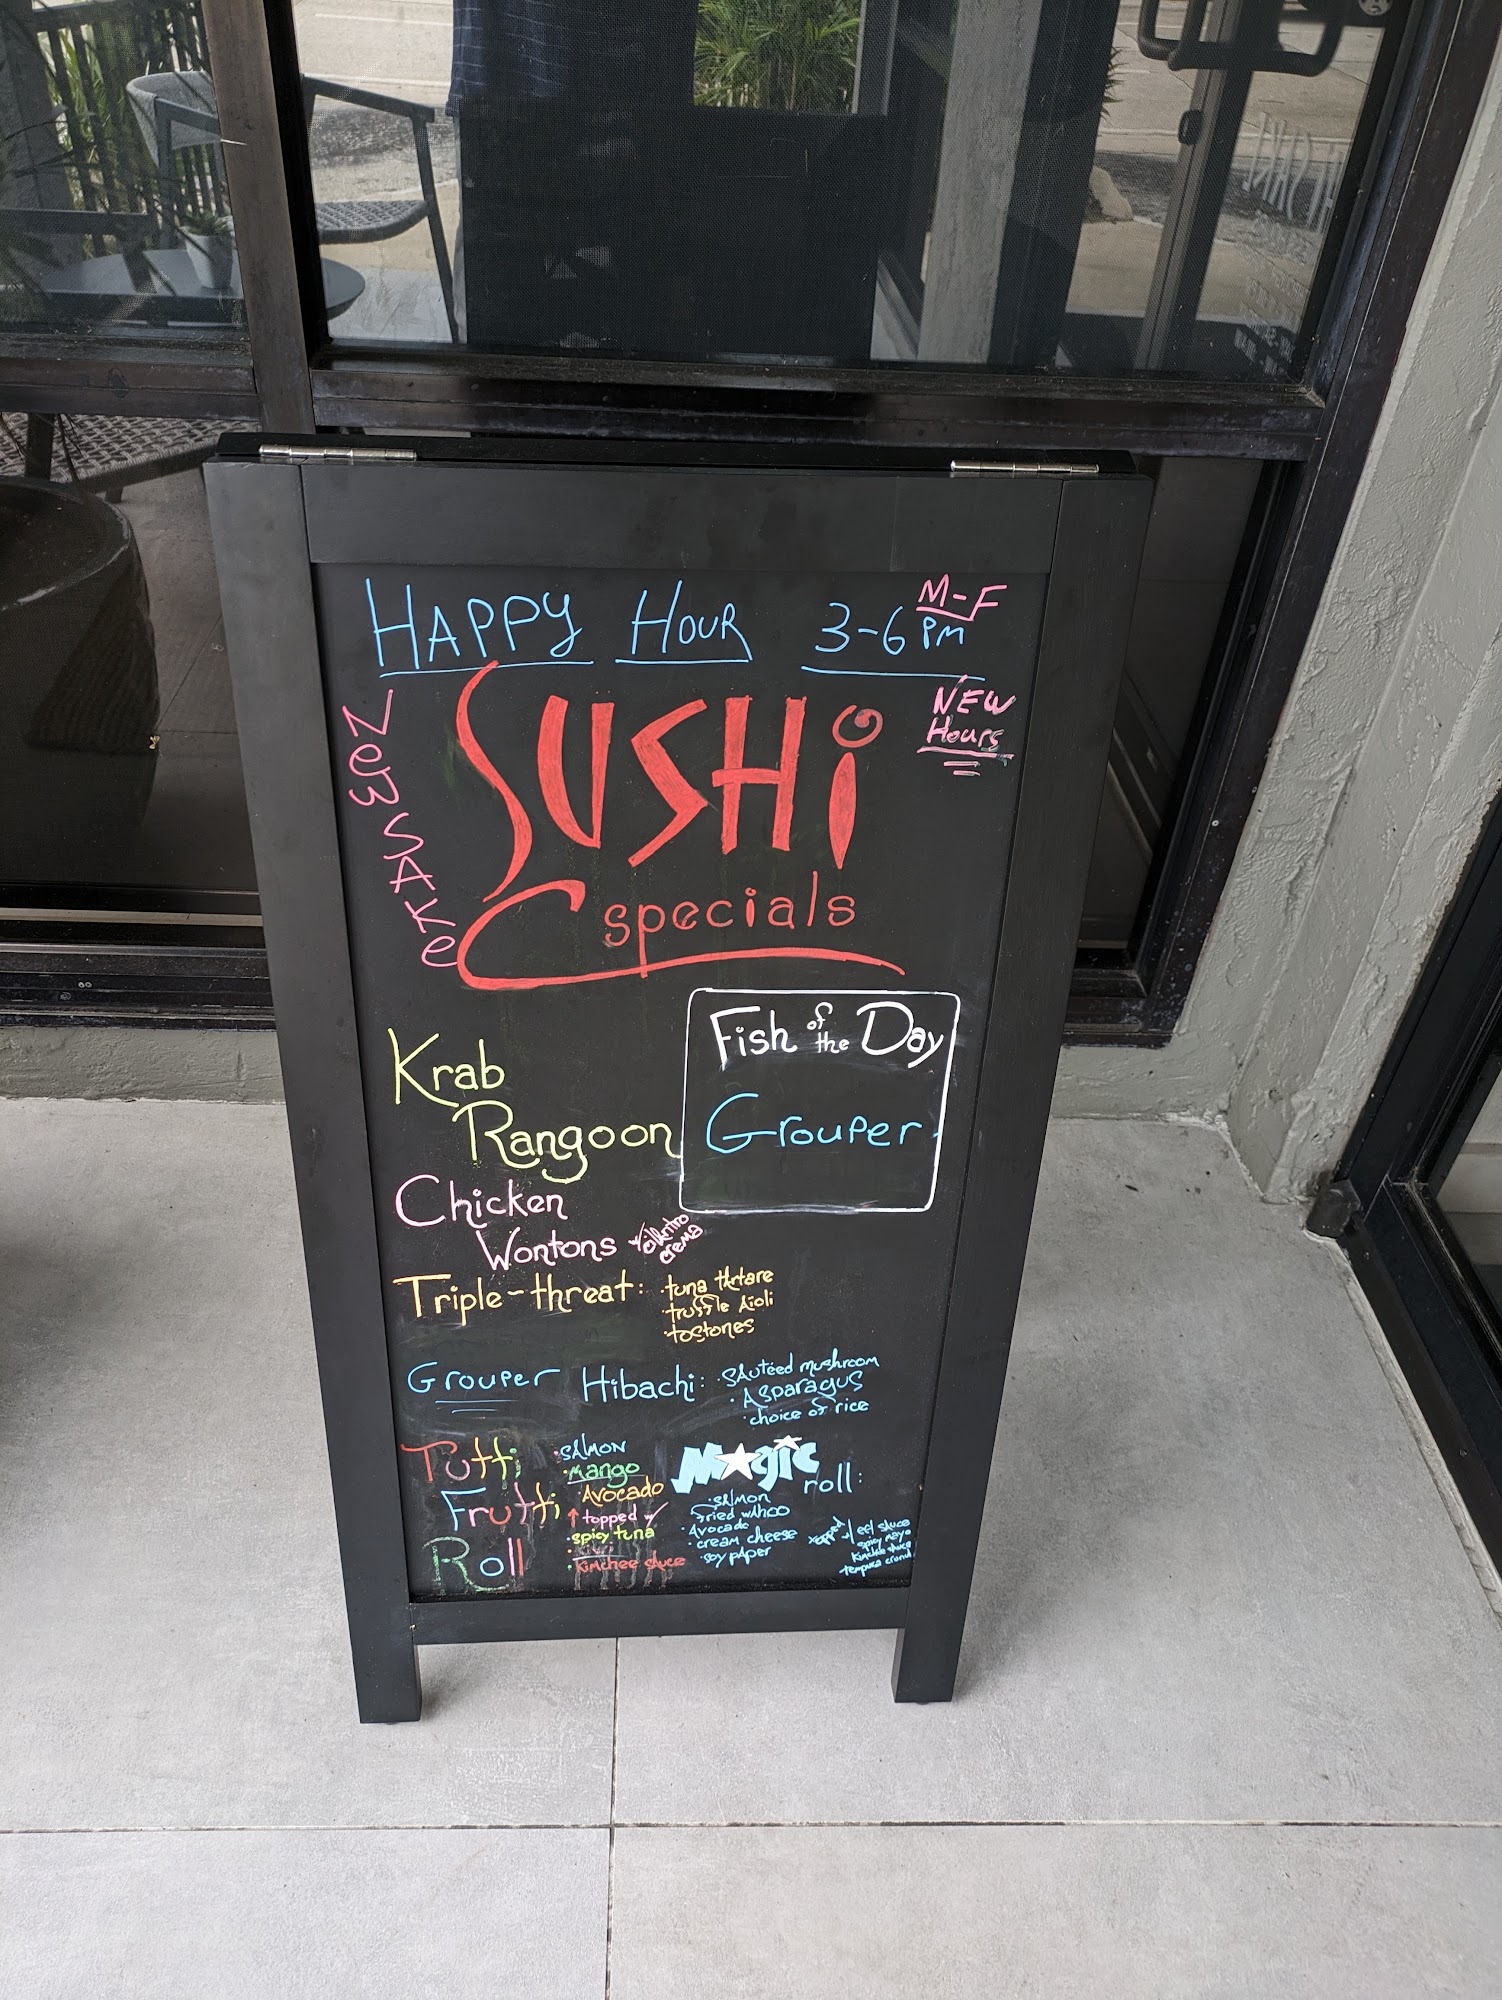 HAPPY HOUR 3-6 PM
M-F
NEW
Hours
New SAKe
SUSHi
specials
Krab
Rangoon
Fish of the Day
Grouper
Chicken
Wontons w/ cilantro
crema
Triple-threat: · tuna tartare
· truffle Aioli
· tostones
Grouper Hibachi: · sauteed mushroom
· Asparagus
· choice of rice
Tutti
Frutti
Roll
· SAlmoN
· Mango
· Avocado
↑ topped w/
· spicy tuna
· kimchee sauce
Magic
roll:
· SAlmon
· fried wahoo
· Avocado
· cream cheese
· soy paper
topped
eel sauce
spicy mayo
kimchee sauce
tempura crunch